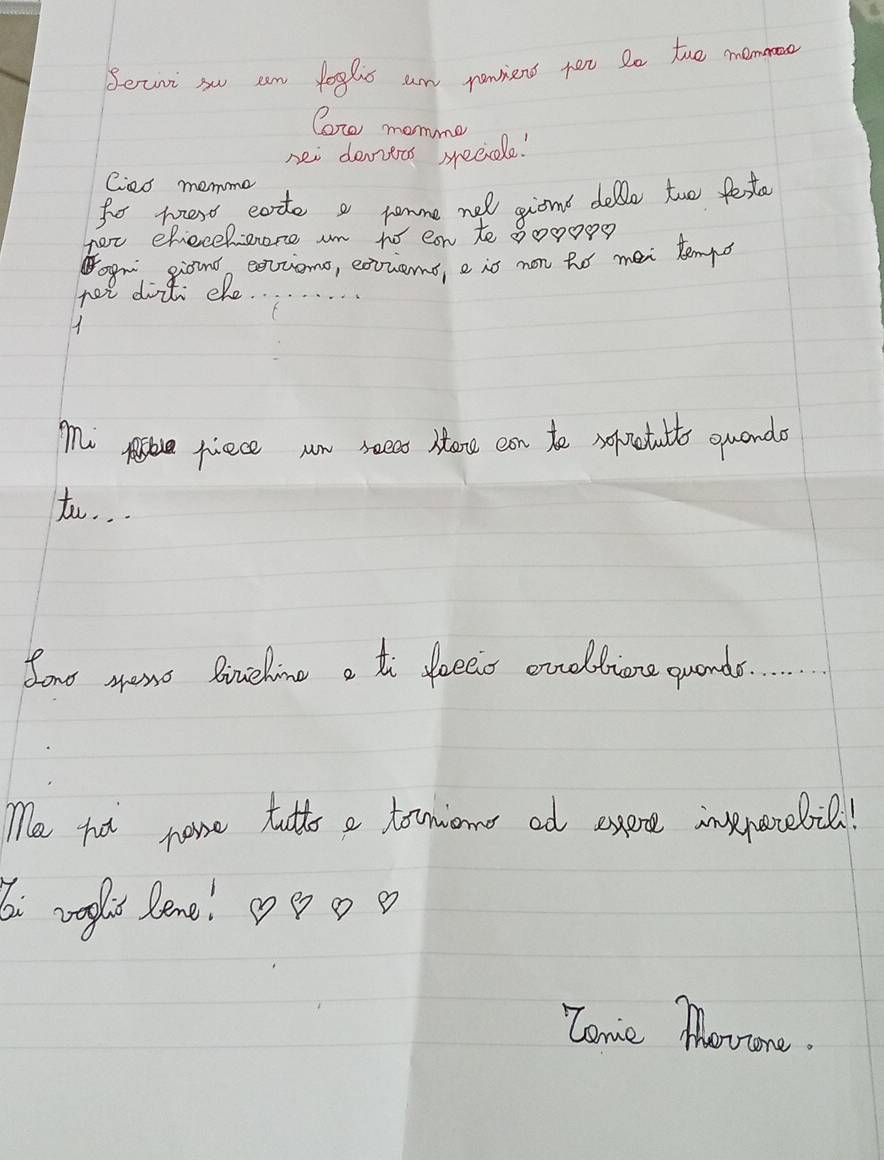 Scrivi su un foglio un pensiero per la tua mamma
Cara mamma
sei davvero speciale!
Ciao mamma
ho preso carta e penna nel giorno della tua festa
per chiacchierare un pò con te ♡♡♡♡♡♡♡
ogni giorno corriamo, corriamo, e io non ho mai tempo
per dirti che..........
Mi piace un sacco stare con te sopratutto quando
tu...
Sono spesso birichina e ti faccio arrabbiare quando........
Ma poi passa tutto e torniamo ad essere inseparabili!
Ti voglio bene! ♡ ♡ ♡ ♡
Tania Marrone.